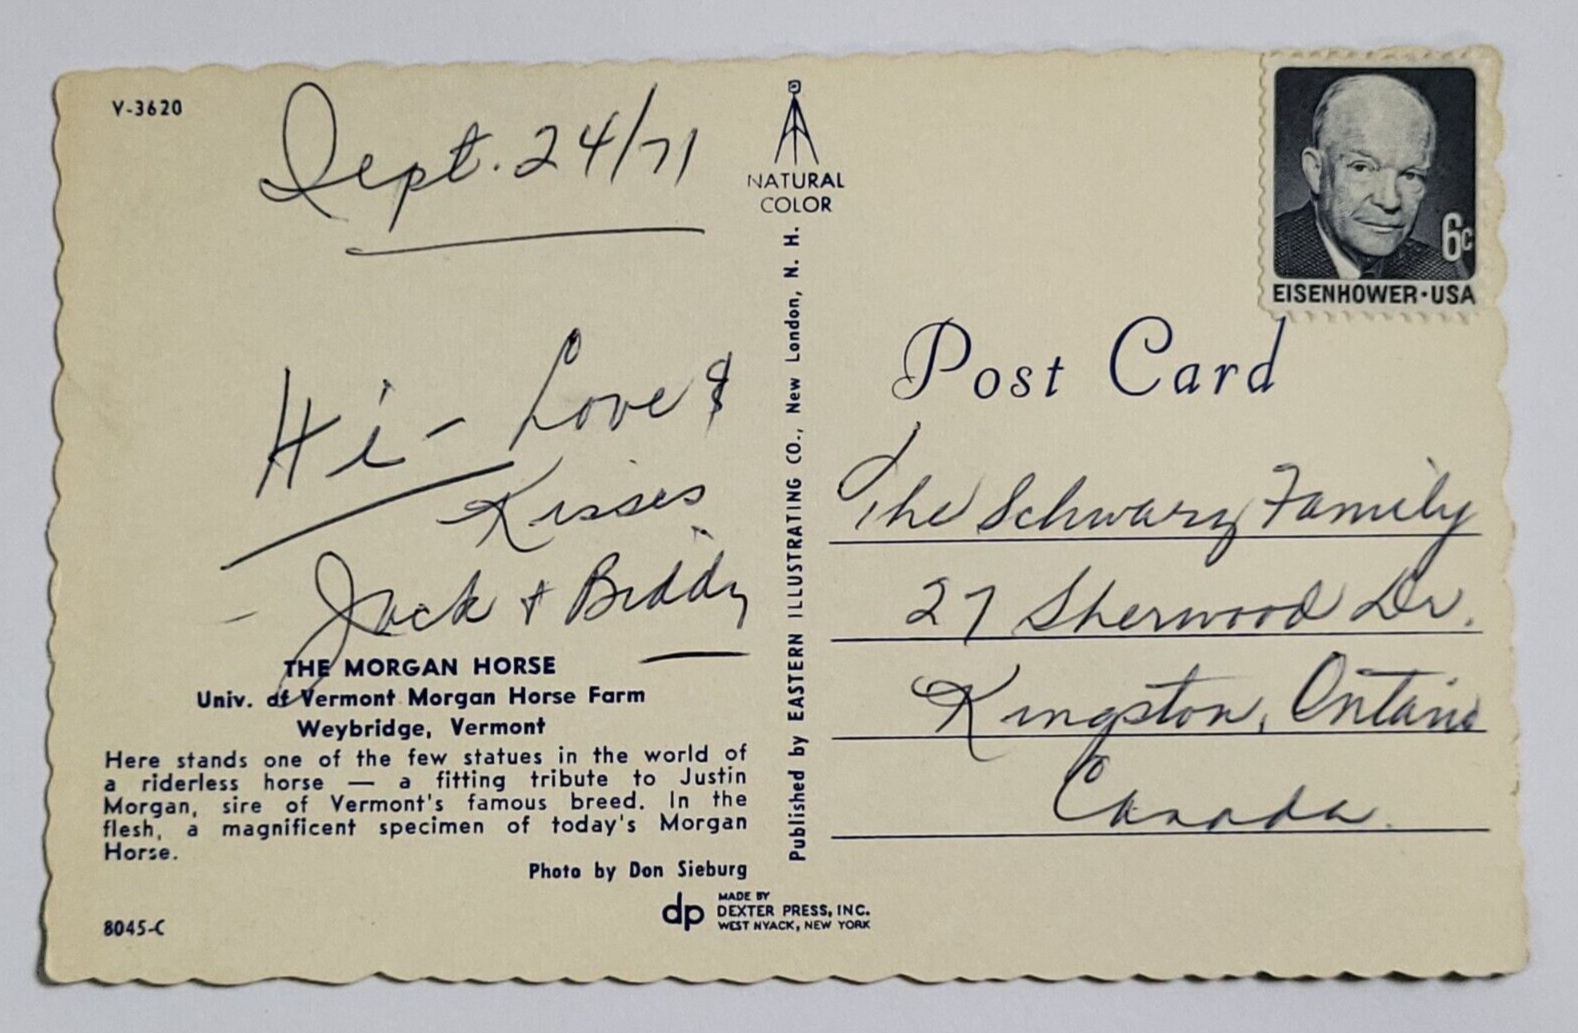 V-3620
Sept. 24/71
Hi - Love &
Kisses
- Jack + Biddy
THE MORGAN HORSE
Univ. of Vermont Morgan Horse Farm
Weybridge, Vermont
Here stands one of the few statues in the world of
a riderless horse — a fitting tribute to Justin
Morgan, sire of Vermont's famous breed. In the
flesh, a magnificent specimen of today's Morgan
Horse.
Photo by Don Sieburg
8045-C
dp
MADE BY
DEXTER PRESS, INC.
WEST NYACK, NEW YORK
NATURAL
COLOR
Published by EASTERN ILLUSTRATING CO., New London, N. H.
6c
EISENHOWER·USA
Post Card
The Schwarz Family
27 Sherwood Dr.
Kingston, Ontario
Canada.